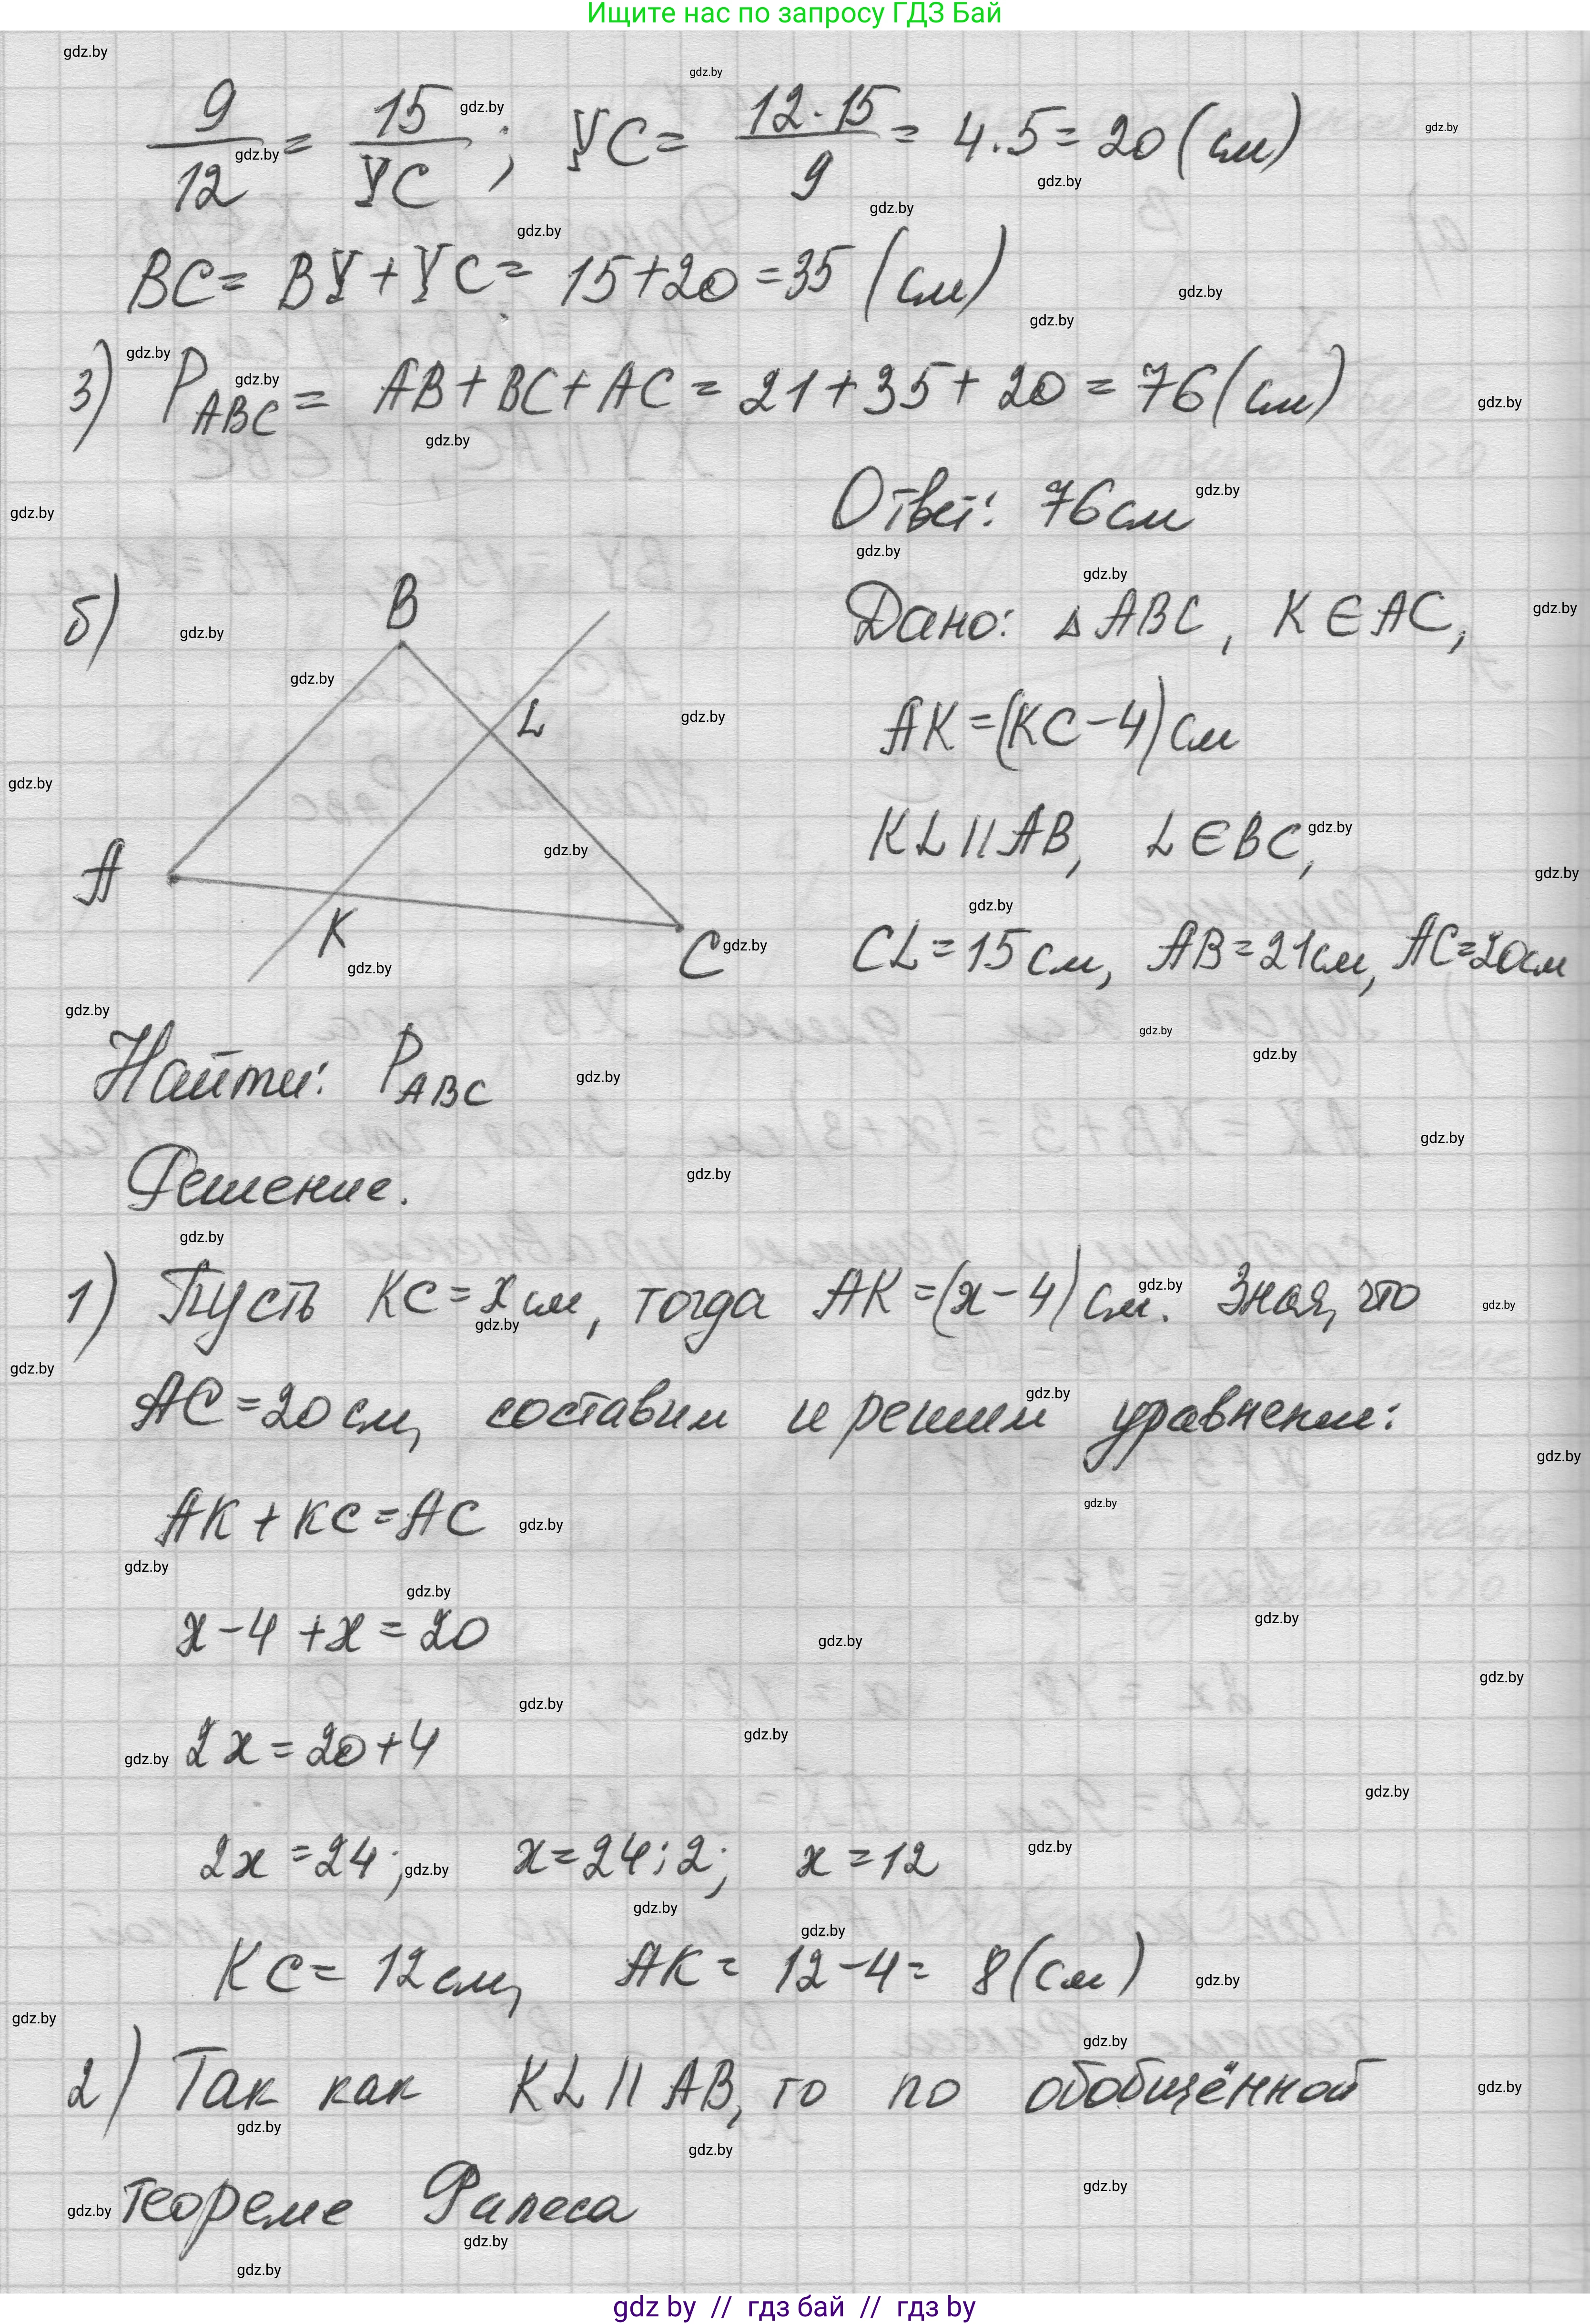 Ищите нас по запросу ГДЗ Бай
9/12 = 15/YC ; YC = 12·15/9 = 4·5 = 20 (см)
BC = BY + YC = 15+20 = 35 (см)
3) P ABC = AB + BC + AC = 21 + 35 + 20 = 76 (см)
Ответ: 76 см
б) B
L
A
K
C
Дано: △ABC, K ∈ AC,
AK = (KC − 4) см
KL || AB, L ∈ BC,
CL = 15 см, AB = 21 см, AC = 20 см
Найти: P ABC
Решение.
1) Пусть KC = x см, тогда AK = (x − 4) см. Зная, что
AC = 20 см, составим и решим уравнение:
AK + KC = AC
x − 4 + x = 20
2x = 20 + 4
2x = 24; x = 24:2; x = 12
KC = 12 см, AK = 12 − 4 = 8 (см)
2) Так как KL || AB, то по обобщённой
теореме Фалеса
gdz by // гдз бай // гдз by